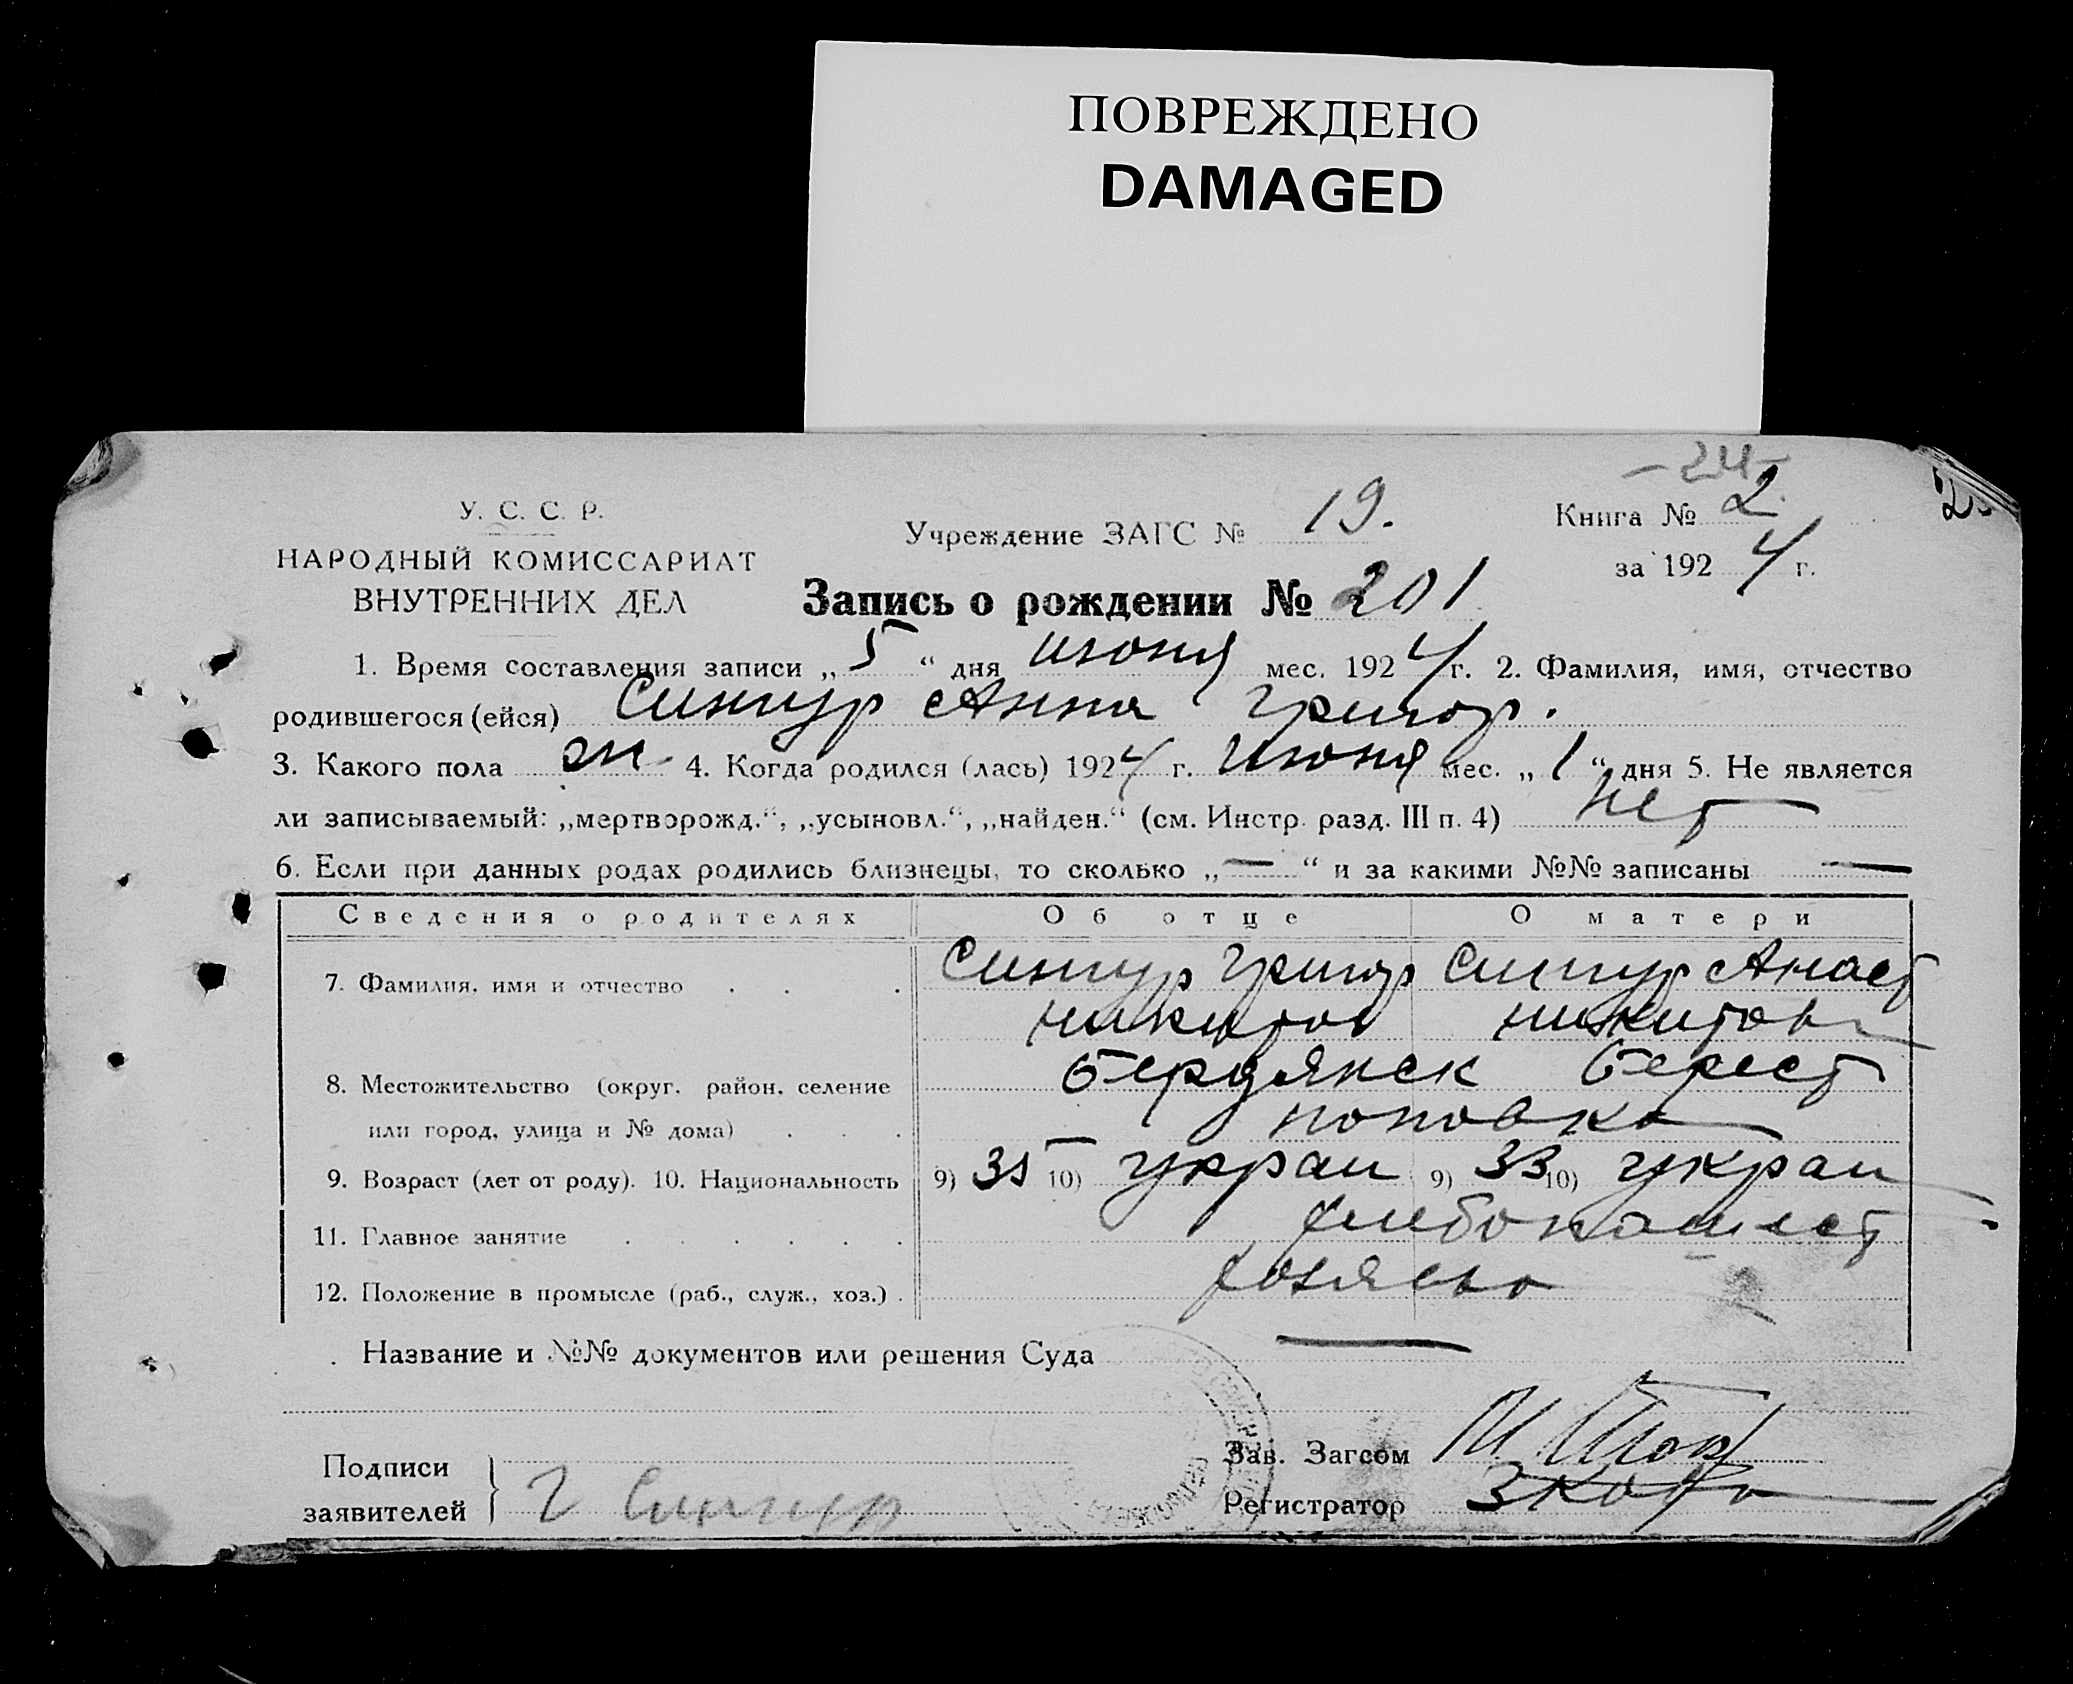 ПОВРЕЖДЕНО
DAMAGED
- 24 -
У. С. С. Р.
НАРОДНЫЙ КОМИССАРИАТ
ВНУТРЕННИХ ДЕЛ
Учреждение ЗАГС № 19.
Книга № 2
за 1924 г.
Запись о рождении № 201
1. Время составления записи „5“ дня июня мес. 1924 г. 2. Фамилия, имя, отчество
родившегося (ейся) Синчур Анна Григор.
3. Какого пола ж 4. Когда родился (лась) 1924 г. Июня мес. „1“ дня 5. Не является
ли записываемый: „мертворожд.“, „усыновл.“, „найден.“ (см. Инстр. разд. III п. 4) нет
6. Если при данных родах родились близнецы, то сколько „—“ и за какими №№ записаны —
Сведения о родителях Об отце О матери
7. Фамилия, имя и отчество . . . Синчур Григор Синчур Анаст
Никитов Никитовн
8. Местожительство (округ, район, селение Бердянск Берест
или город, улица и № дома) . . . Поповка
9. Возраст (лет от роду). 10. Национальность 9) 35 10) украи 9) 33 10) украи
11. Главное занятие . . . . . . хлебопашест
12. Положение в промысле (раб., служ., хоз.) . хозяева
Название и №№ документов или решения Суда —
Подписи
заявителей
Г Синчур
Зав. Загсом
Регистратор